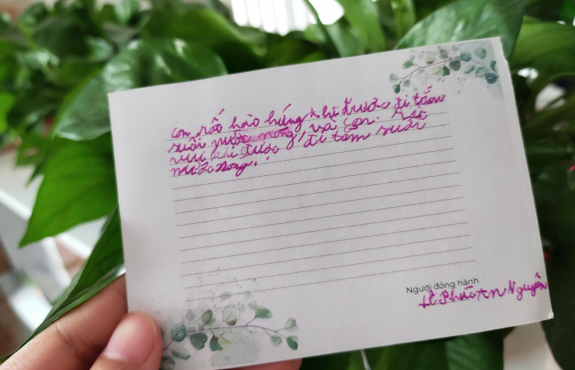 con rất hào hứng khi được đi tắm
suối nước nóng, và con rất
vui khi được đi tắm suối
nước nóng.
Người đồng hành
Lê Phước An Nguyên